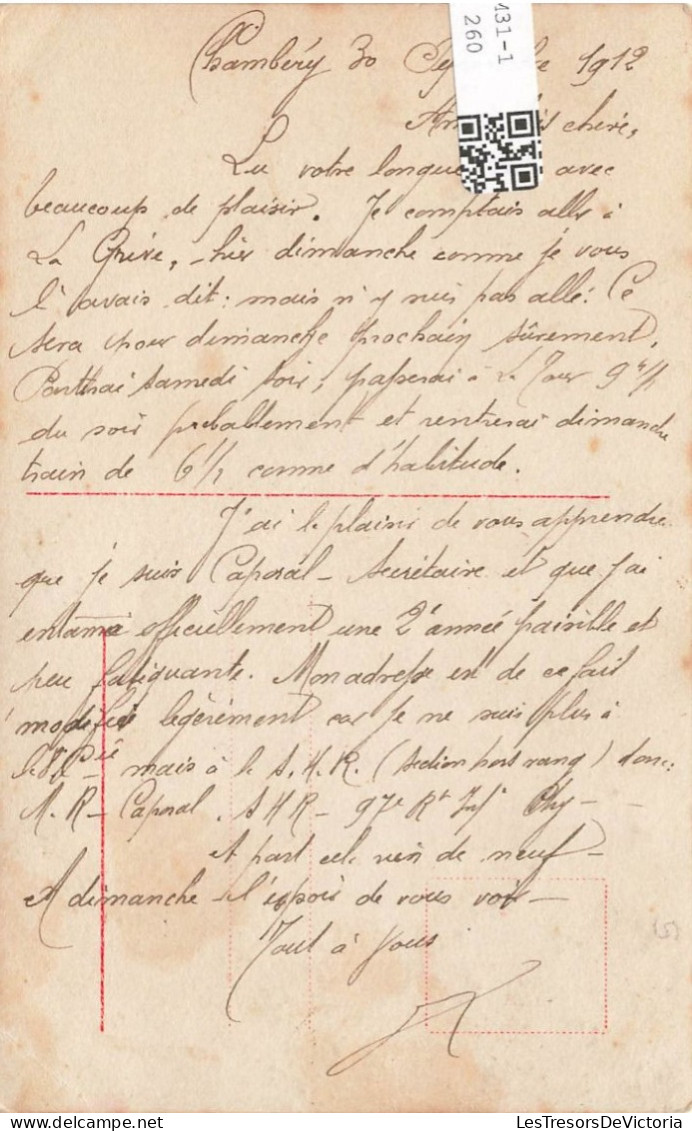 M31-1
260
Chambéry 30 1912
chéri,
Lu votre longue avec
beaucoup de plaisir. Je comptais aller à
La Grive, hier dimanche comme je vous
l'avais dit: mais n'y suis pas allé. Ce
sera pour dimanche prochain sûrement.
Partirai samedi soir, passerai à La Tour 9h½
du soir probablement et rentrerai dimanche
train de 6h½ comme d'habitude.
J'ai le plaisir de vous apprendre
que je suis Caporal-Secrétaire et que j'ai
entamé officiellement une 2e année paisible et
peu fatiguante. Mon adresse est de ce fait
modifiée légèrement car je ne suis plus à
la Cie mais à la S.H.R. (section hors rang) donc:
M. R- Caporal. SHR- 97e Rt Infie Chy-
A part cela rien de neuf-
A dimanche l'espoir de vous voir-
Tout à vous
LesTresorsDeVictoria